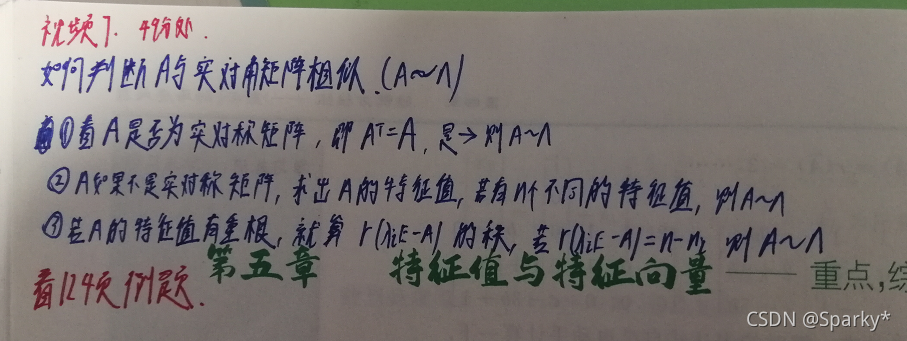 视频7. 49分处.
如何判断A与实对角矩阵相似.(A~Λ)
①看A是否为实对称矩阵,即Aᵀ=A,是→则A~Λ
②A如果不是实对称矩阵,求出A的特征值,若有n个不同的特征值,则A~Λ
③若A的特征值有重根,就算r(λᵢE-A)的秩,若r(λᵢE-A)=n-nᵢ则A~Λ
第五章 特征值与特征向量——重点,综
看124页例题.
CSDN @Sparky*